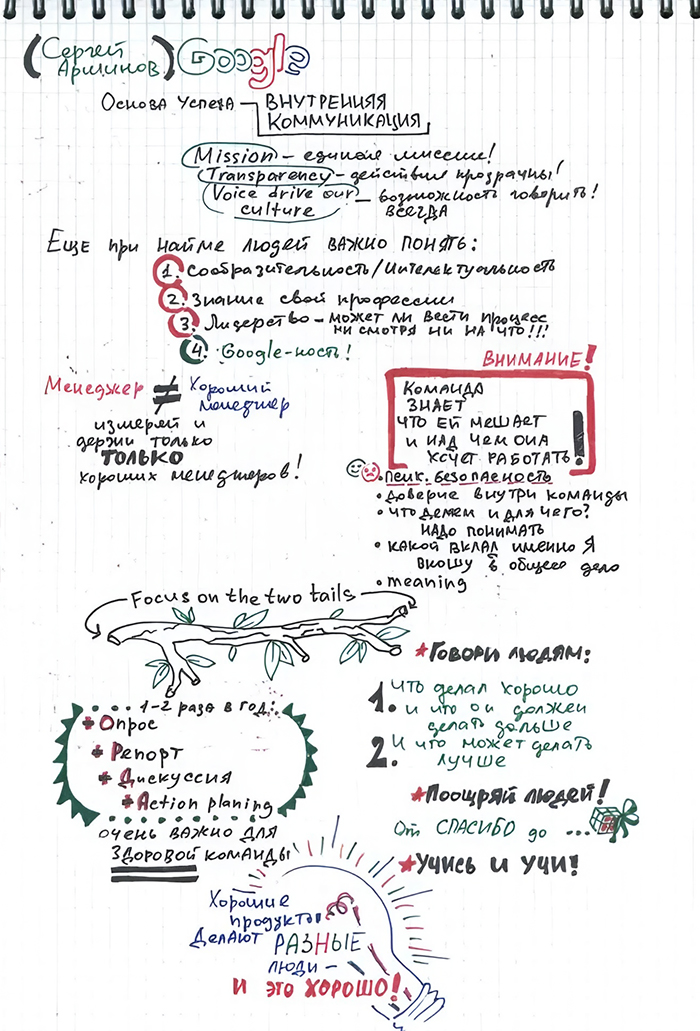 (Сергей
Аршинов) Google
Основа успеха – ВНУТРЕННЯЯ
КОММУНИКАЦИЯ
Mission – единая миссия!
Transparency – действия прозрачны!
Voice drive our – возможность говорить!
culture ВСЕГДА
Еще при найме людей важно понять:
1. Сообразительность/Интелектуальность
2. Знание своей профессии
3. Лидерство – может ли вести процесс
ни смотря ни на что!!!
4. Google-ность!
Менеджер ≠ Хороший
менеджер
измеряй и
держи только
ТОЛЬКО
хороших менеджеров!
ВНИМАНИЕ!
Команда
знает
что ей мешает
и над чем она
хочет работать!
• псих. безопасность
• доверие внутри команды
• что делаем и для чего?
надо понимать
• какой вклад именно я
вношу в общее дело
• meaning
Focus on the two tails
1-2 раза в год:
+ Опрос
+ Репорт
+ Дискуссия
+ Action planing
очень важно для
здоровой команды
★ Говори людям:
1. Что делал хорошо
и что он должен
делать дальше
2. И что может делать
лучше
★ Поощряй людей!
От СПАСИБО до ...
★ Учись и учи!
Хорошие
продукты
делают РАЗНЫЕ
люди –
и это ХОРОШО!